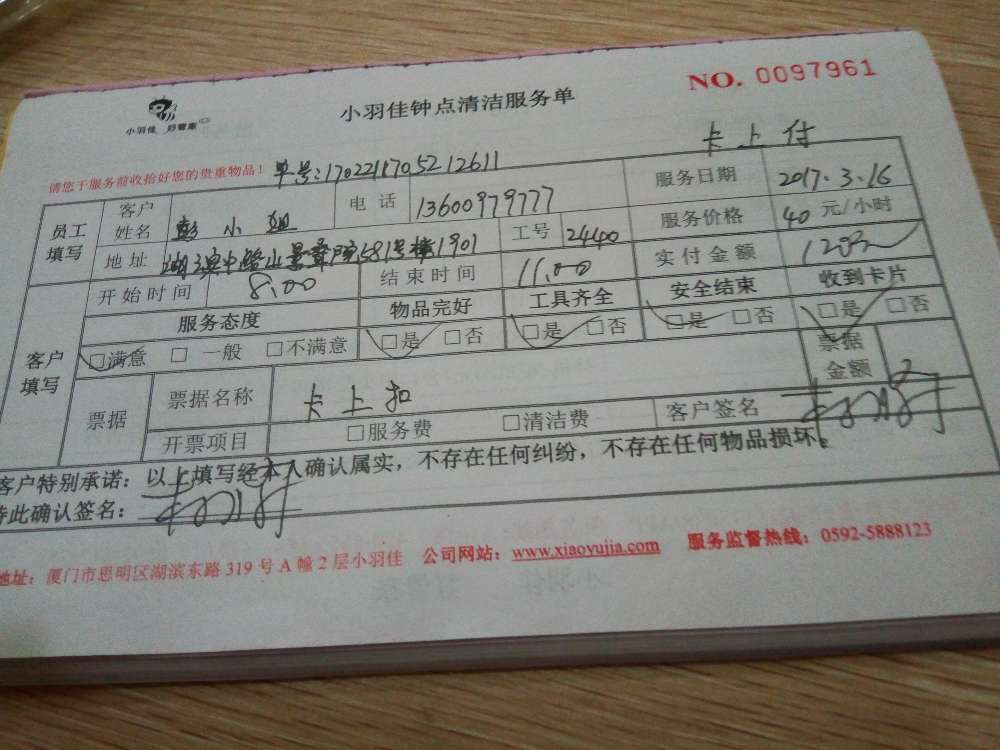 NO. 0097961
小羽佳 妙管家
小羽佳钟点清洁服务单
卡上付
请您于服务前收拾好您的贵重物品！ 单号:1702211705212611
员工填写 客户姓名 彭小姐 电话 13600979777 服务日期 2017.3.16
地址 中路山景 581号楼1901 工号 24400 服务价格 40 元/小时
开始时间 8:00 结束时间 11:00 实付金额 120
客户填写 服务态度 物品完好 工具齐全 安全结束 收到卡片
□满意 □一般 □不满意 □是 □否 □是 □否 □是 □否 □是 □否
票据 票据名称 卡上扣 票据金额
开票项目 □服务费 □清洁费 客户签名
客户特别承诺：以上填写经本人确认属实，不存在任何纠纷，不存在任何物品损坏。
特此确认签名：
地址：厦门市思明区湖滨东路 319 号 A 幢 2 层小羽佳 公司网站：www.xiaoyujia.com 服务监督热线：0592-5888123